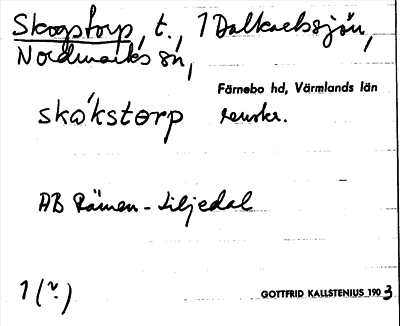 Skogstorp, t., 1 Dalkarlssjön,
Nordmarks sn,
Färnebo hd, Värmlands län
skɷ́kstɷrp renskr.
AB Rämen-Liljedal
1 (?)
GOTTFRID KALLSTENIUS 1903